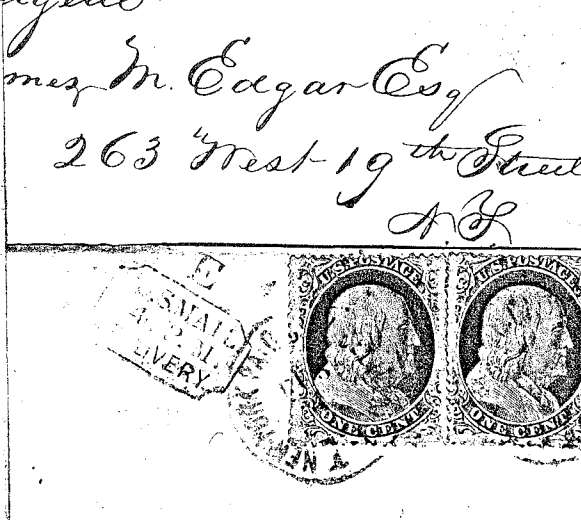 M. Edgar Esq
263 West 19th Street
N.Y.
E
U.S. MAIL
DELIVERY
NEW YORK
U.S. POSTAGE
ONE CENT
U.S. POSTAGE
ONE CENT